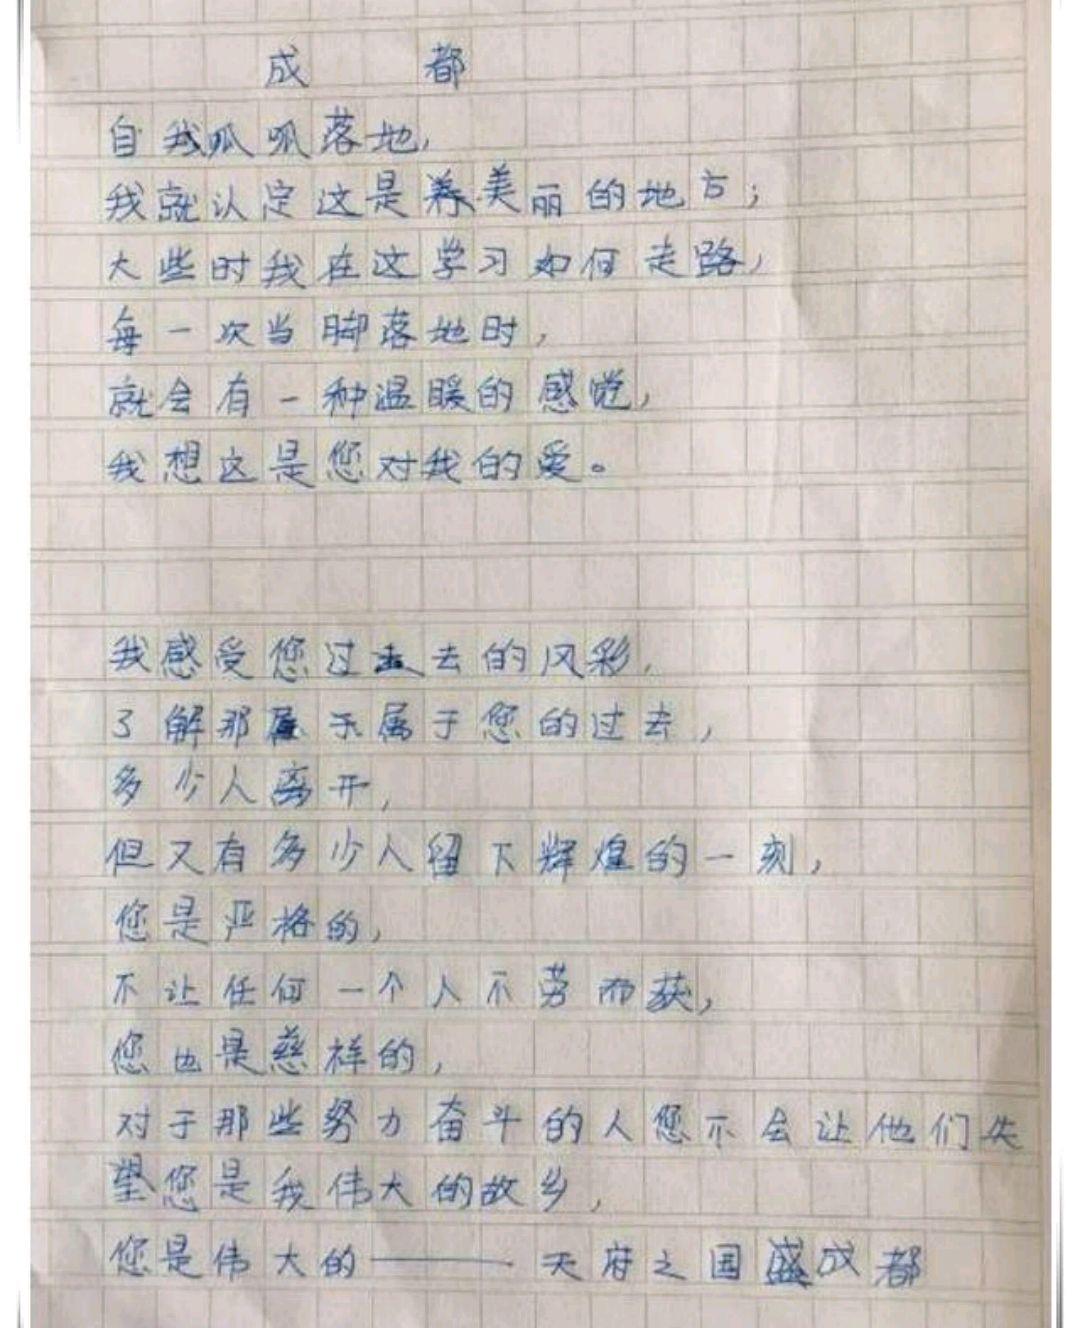 成都
自我呱呱落地,
我就认定这是美丽的地方;
大些时我在这学习如何走路,
每一次当脚落地时,
就会有一种温暖的感觉,
我想这是您对我的爱。
我感受您过去的风彩,
了解那属于您的过去,
多少人离开,
但又有多少人留下辉煌的一刻,
您是严格的,
不让任何一个人不劳而获,
您也是慈祥的,
对于那些努力奋斗的人您不会让他们失
望您是我伟大的故乡,
您是伟大的——天府之国成都